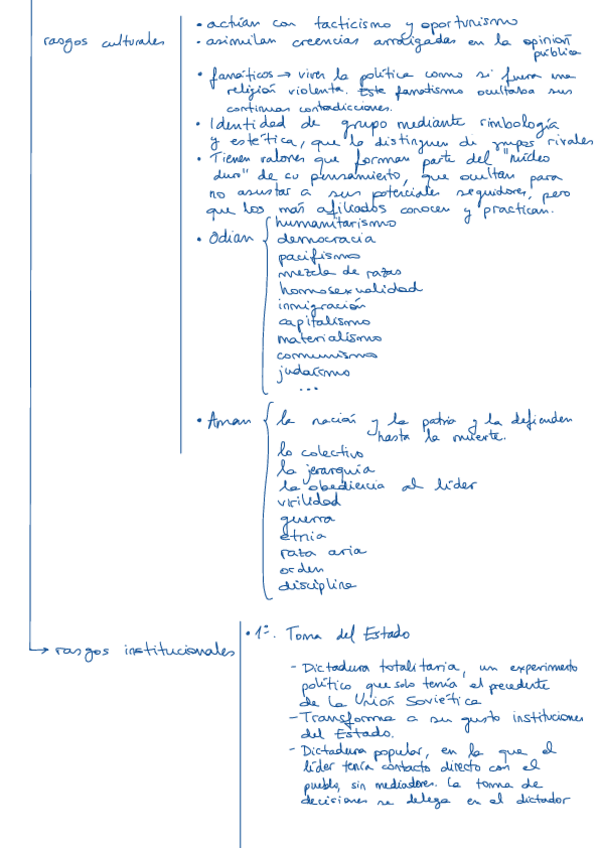 rasgos culturales
• actúan con tacticismo y oportunismo
• asimilan creencias arraigadas en la opinión
pública
• fanáticos → viven la política como si fuera una
religión violenta. Este fanatismo ocultaba sus
continuas contradicciones.
• Identidad de grupo mediante simbología
y estética, que lo distinguen de grupos rivales
• Tienen valores que forman parte del "núcleo
duro" de su pensamiento, que ocultan para
no asustar a sus potenciales seguidores, pero
que los más aficados conocen y practican.
• Odian { humanitarismo
democracia
pacifismo
mezcla de razas
homosexualidad
inmigración
capitalismo
materialismo
comunismo
judaísmo
...
• Aman { la nación y la patria y la defienden
hasta la muerte.
lo colectivo
la jerarquía
la obediencia al líder
virilidad
guerra
etnia
raza aria
orden
disciplina
→ rasgos institucionales
• 1º. Toma del Estado
- Dictadura totalitaria, un experimento
político que solo tenía el precedente
de la Unión Soviética
- Transforma a su gusto instituciones
del Estado.
- Dictadura popular, en la que el
líder tenía contacto directo con el
pueblo, sin mediadores. La toma de
decisiones se delega en el dictador